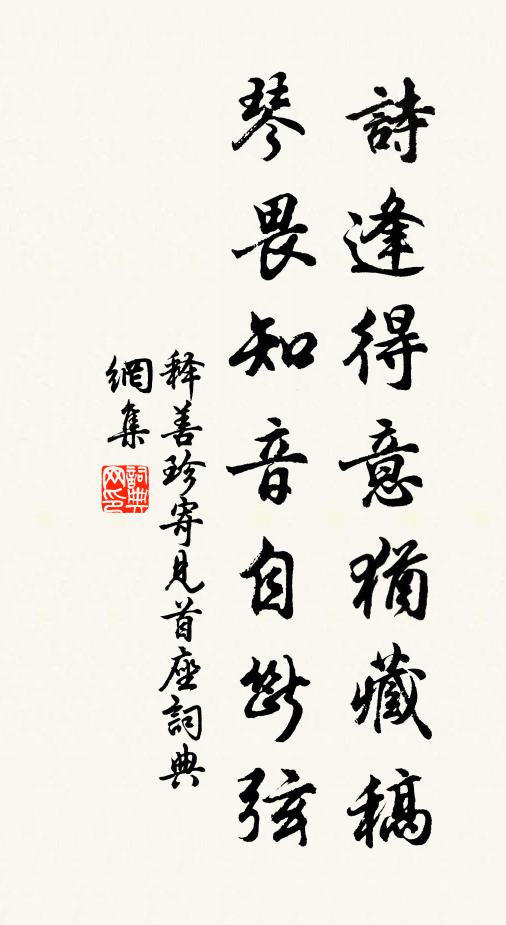 詩逢得意猶藏稿
琴畏知音自斷弦
释善珍寄見首座詞典
網集
詞典
网印